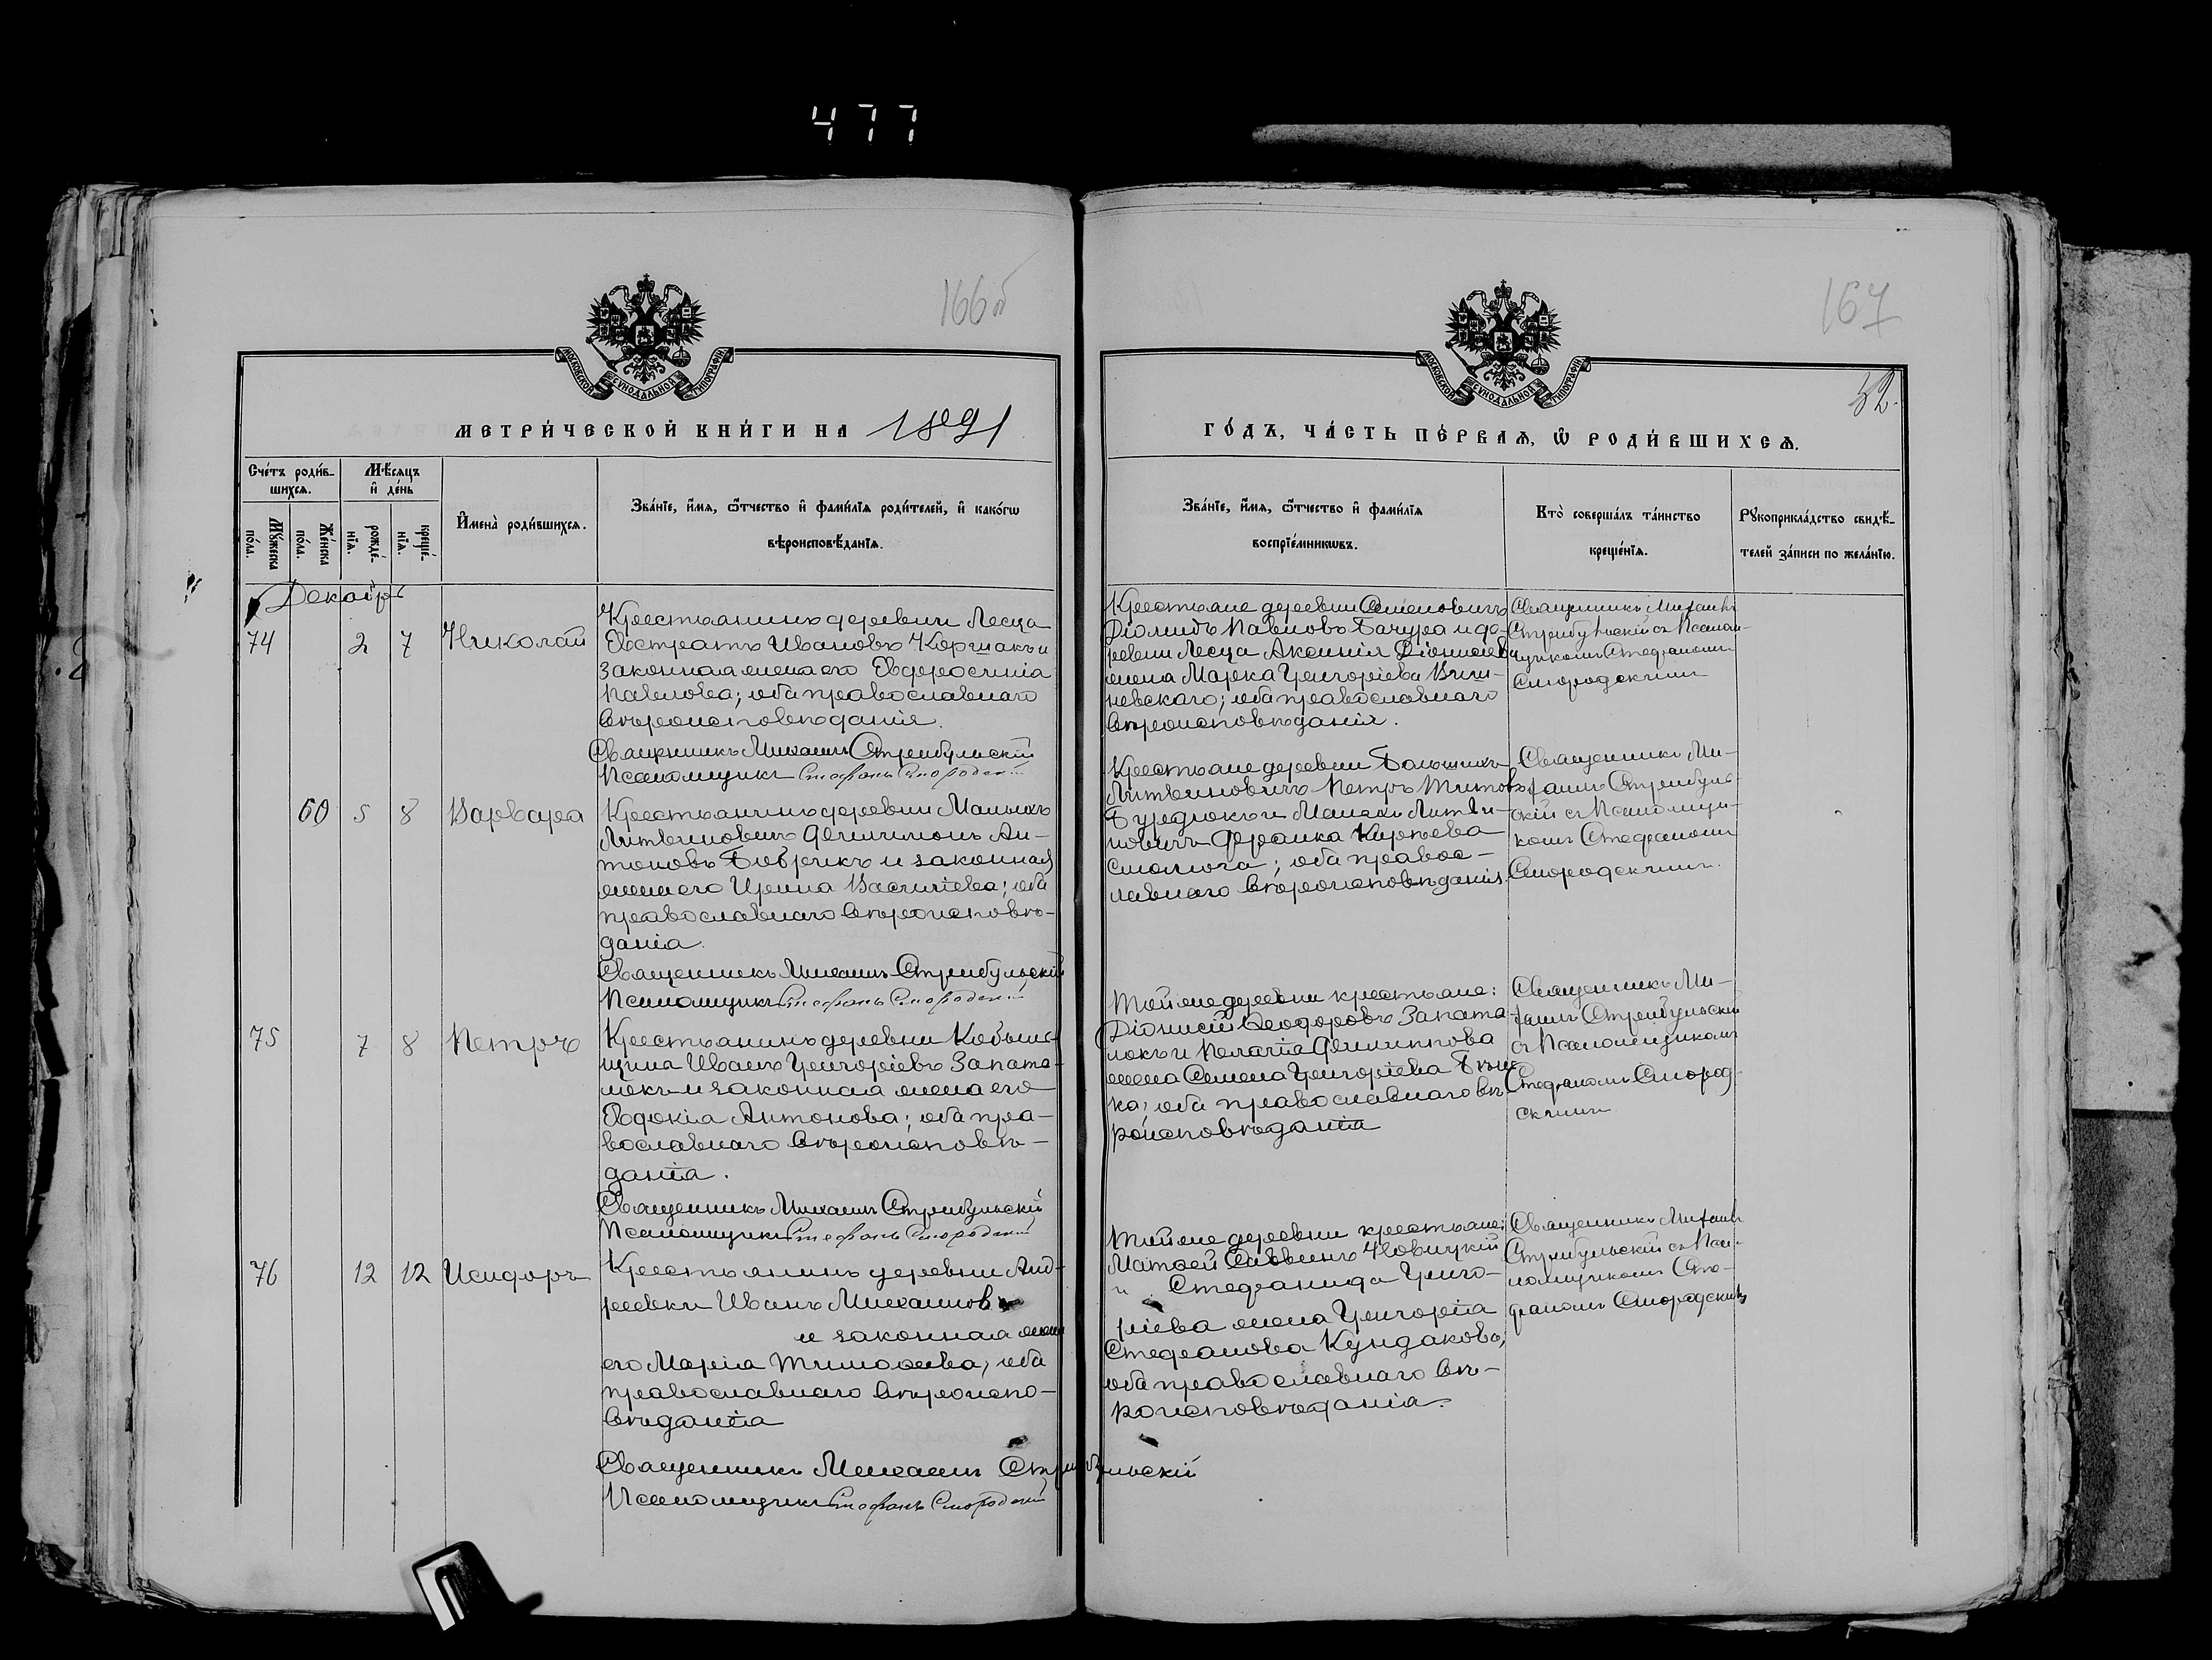 477
166об
167
МОСКОВСКОЙ СѴНОДАЛЬНОЙ ТИПОГРАФІИ
МОСКОВСКОЙ СѴНОДАЛЬНОЙ ТИПОГРАФІИ
52.
МЕТРИ́ЧЕСКОЙ КНИ́ГИ НА 1891
ГО́ДЪ, ЧА́СТЬ ПЕ́РВАѦ, Ѽ РОДИ́ВШИХСѦ.
Сче́тъ роди́в-
шихсѧ.
Мѣ́сѧцъ
и҆ де́нь
Мꙋ́жеска
по́ла.
Же́нска
по́ла.
рожде́-
нїѧ.
креще́-
нїѧ.
И҆мена̀ роди́вшихсѧ.
Зва́нїе, и҆́мѧ, ѻ҆́тчество и҆ фами́лїѧ роди́телей, и҆ како́гѡ
вѣроисповѣ́данїѧ.
Зва́нїе, и҆́мѧ, ѻ҆́тчество и҆ фами́лїѧ
воспрїе́мникѡвъ.
Кто̀ соверша́лъ та́инство
креще́нїѧ.
Рꙋкоприкла́дство свидѣ́-
телей за́писи по жела́нїю.
Декабрь
74 2 7 Николай
Крестьянинъ деревни Лесца
Евстратъ Ивановъ Коршакъ и
законная жена его Евфросинія
Павлова; оба православнаго
вѣроисповѣданія.
Священникъ Михаилъ Стрибульскій
Псаломщикъ Стефанъ Смородскій
Крестьяне деревни Семеновичъ
Діомидъ Павловъ Бачура и де-
ревни Лесца Аксинія Діонисіева
жена Марка Григоріева Виш-
невскаго; оба православнаго
вѣроисповѣданія.
Священникъ Михаилъ
Стрибульскій съ Псалом-
щикомъ Стефаномъ
Смородскимъ
60 5 8 Варвара
Крестьянинъ деревни Малыхъ
Литвиновичъ Филимонъ Ан-
тоновъ Бобрикъ и законная
жена его Ирина Василіева; оба
православнаго вѣроисповѣ-
данія.
Священникъ Михаилъ Стрибульскій
Псаломщикъ Стефанъ Смородскій
Крестьяне деревни Большихъ
Литвиновичъ Петръ Титовъ
и Малыхъ Литви-
новичъ
оба правос-
лавнаго вѣроисповѣданія.
Священникъ Ми-
хаилъ Стрибуль-
скій съ Псаломщи-
комъ Стефаномъ
Смородскимъ.
75 7 8 Петръ
Крестьянинъ деревни
Иванъ Григоріевъ Запата-
локъ и законная жена его
Евдокія Антонова; оба пра-
вославнаго вѣроисповѣ-
данія.
Священникъ Михаилъ Стрибульскій
Псаломщикъ Стефанъ Смородскій
Той же деревни крестьяне:
Діонисій Ѳеодоровъ Запата-
локъ и Пелагія Филиппова
жена Семена Григоріева
оба православнаго вѣ-
роисповѣданія
Священникъ Ми-
хаилъ Стрибульскій
съ Псаломщикомъ
Стефаномъ Смород-
скимъ
76 12 12 Исидоръ
Крестьянинъ деревни Анд-
реевки Иванъ Михаиловъ
и законная жена
его Марія Тимоѳеева; оба
православнаго вѣроиспо-
вѣданія
Священникъ Михаилъ Стрибульскій
Псаломщикъ Стефанъ Смородскій
Той же деревни крестьяне:
Матѳей Саввинъ Новицкій
и Стефанида Григо-
ріева жена Григорія
Стефанова Кундаковъ,
оба православнаго вѣ-
роисповѣданія.
Священникъ Михаилъ
Стрибульскій съ Пса-
ломщикомъ Сте-
фаномъ Смородскимъ